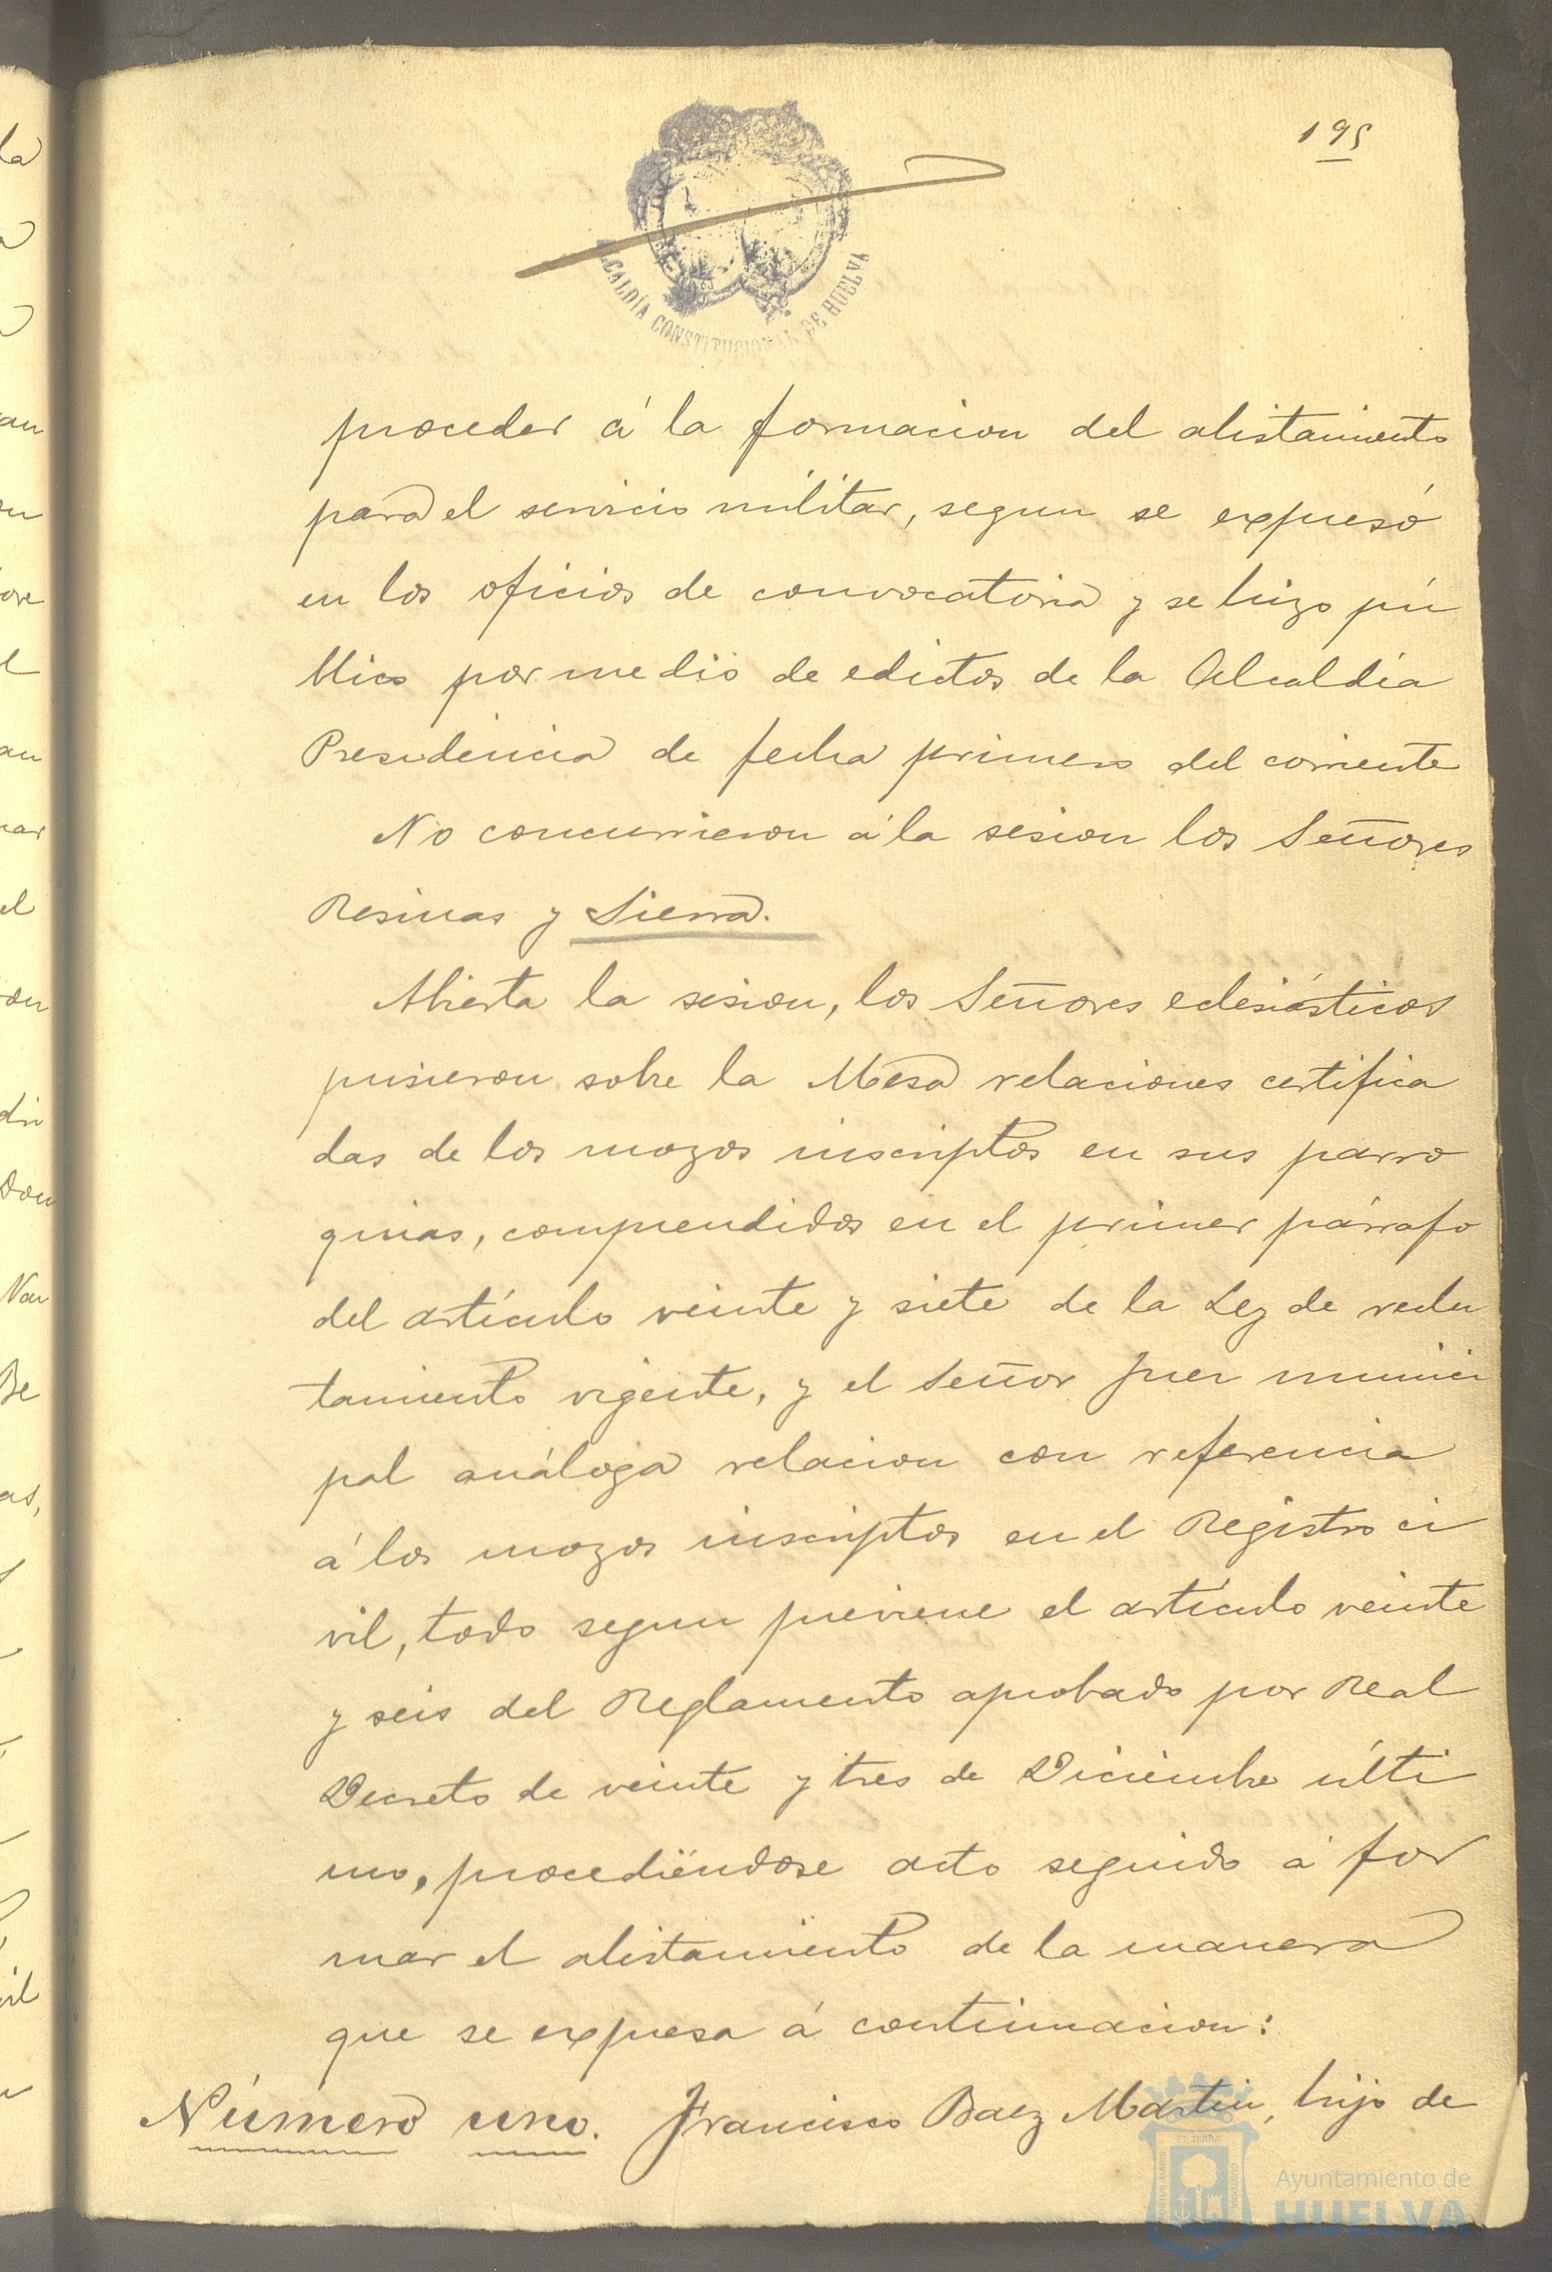 195
ALCALDÍA CONSTITUCIONAL DE HUELVA
proceder á la formacion del alistamiento
para el servicio militar, segun se expresó
en los oficios de convocatoria y se hizo pú
blico por medio de edictos de la Alcaldía
Presidencia de fecha primero del corriente
No concurrieron á la sesion los Señores
Resinas y Sierra.
Abierta la sesion, los Señores eclesiásticos
pusieron sobre la Mesa relaciones certifica
das de los mozos inscriptos en sus parro
quias, comprendidos en el primer párrafo
del artículo veinte y siete de la Ley de reclu
tamiento vigente, y el Señor Juez munici
pal análoga relacion con referencia
á los mozos inscriptos en el Registro ci
vil, todo segun previene el artículo veinte
y seis del Reglamento aprobado por Real
Decreto de veinte y tres de Diciembre últi
mo, procediéndose acto seguido á for
mar el alistamiento de la manera
que se expresa á continuacion:
Número uno. Francisco Baez Martin, hijo de
Ayuntamiento de
HUELVA